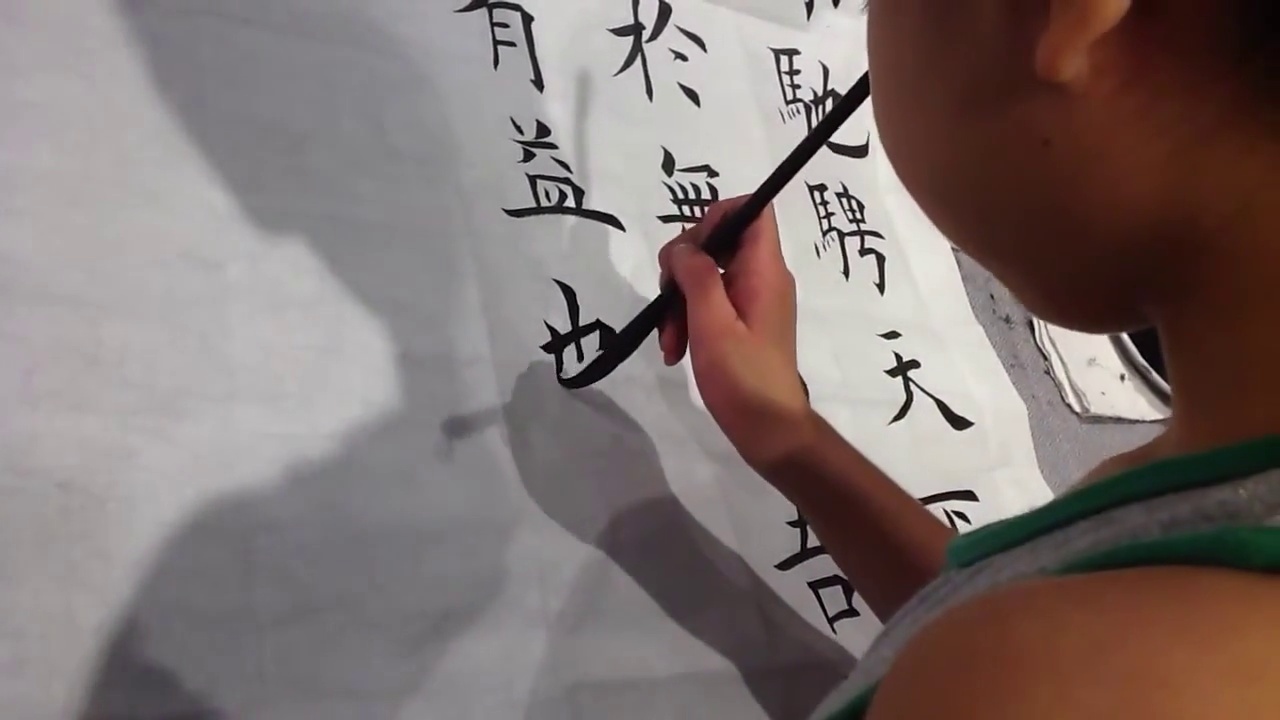 馳騁天
於無
有益也